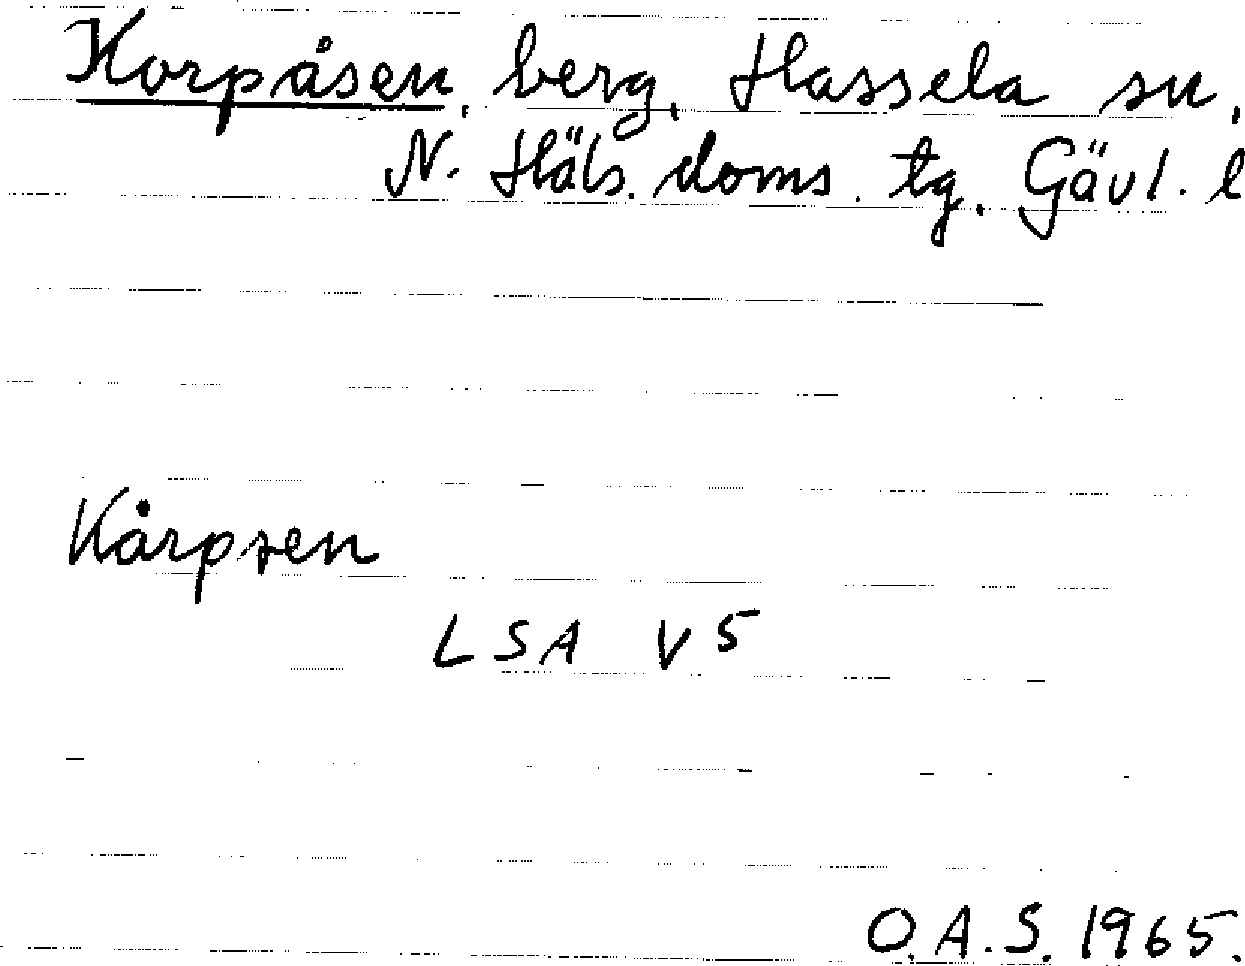 Korpåsen, berg, Hassela sn,
N. Häls. doms. tg. Gävl. l
Kårpsen
LSA V5
O.A.S. 1965.